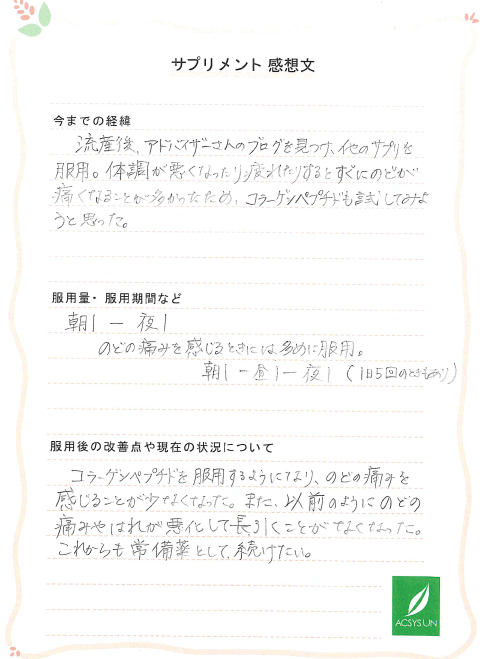 サプリメント 感想文
今までの経緯
流産後、アドバイザーさんのブログを見つけ、他のサプリを
服用。体調が悪くなったり疲れたりするとすぐにのどが
痛くなることが多かったため、コラーゲンペプチドも試してみよ
うと思った。
服用量・服用期間など
朝1 ー 夜1
のどの痛みを感じるときには多めに服用。
朝1 ー 昼1 ー 夜1 (1日5回のときもあり)
服用後の改善点や現在の状況について
コラーゲンペプチドを服用するようになり、のどの痛みを
感じることが少なくなった。また、以前のようにのどの
痛みやはれが悪化して長引くことがなくなった。
これからも常備薬として、続けたい。
ACSYSUN